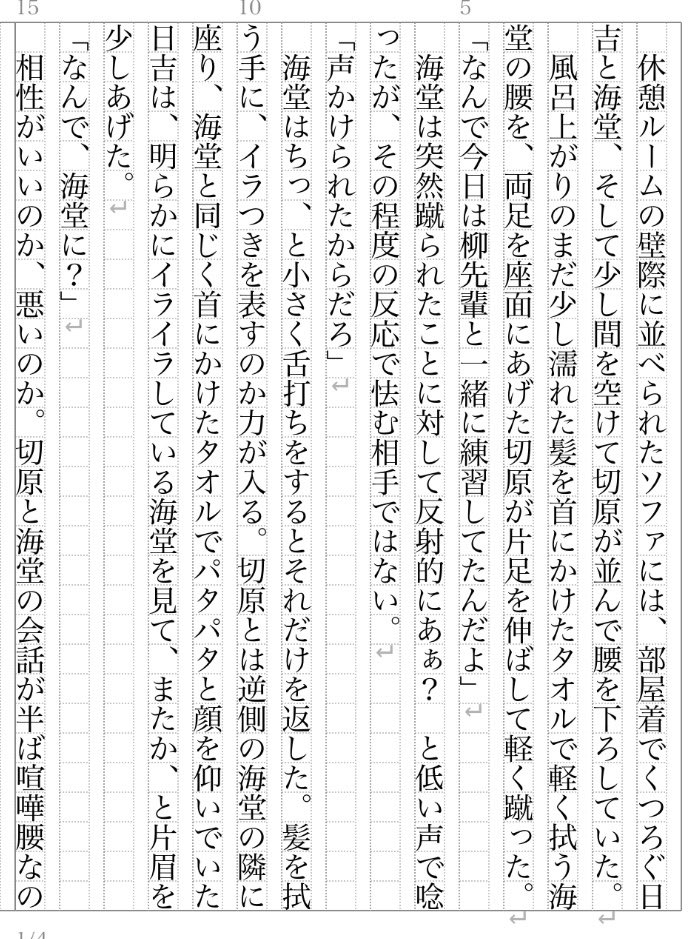 15 10 5
　休憩ルームの壁際に並べられたソファには、部屋着でくつろぐ日
吉と海堂、そして少し間を空けて切原が並んで腰を下ろしていた。
　風呂上がりのまだ少し濡れた髪を首にかけたタオルで軽く拭う海
堂の腰を、両足を座面にあげた切原が片足を伸ばして軽く蹴った。
「なんで今日は柳先輩と一緒に練習してたんだよ」
　海堂は突然蹴られたことに対して反射的にあぁ？　と低い声で唸
ったが、その程度の反応で怯む相手ではない。
「声かけられたからだろ」
　海堂はちっ、と小さく舌打ちをするとそれだけを返した。髪を拭
う手に、イラつきを表すのか力が入る。切原とは逆側の海堂の隣に
座り、海堂と同じく首にかけたタオルでパタパタと顔を仰いでいた
日吉は、明らかにイライラしている海堂を見て、またか、と片眉を
少しあげた。
「なんで、海堂に？」
　相性がいいのか、悪いのか。切原と海堂の会話が半ば喧嘩腰なの
1/4